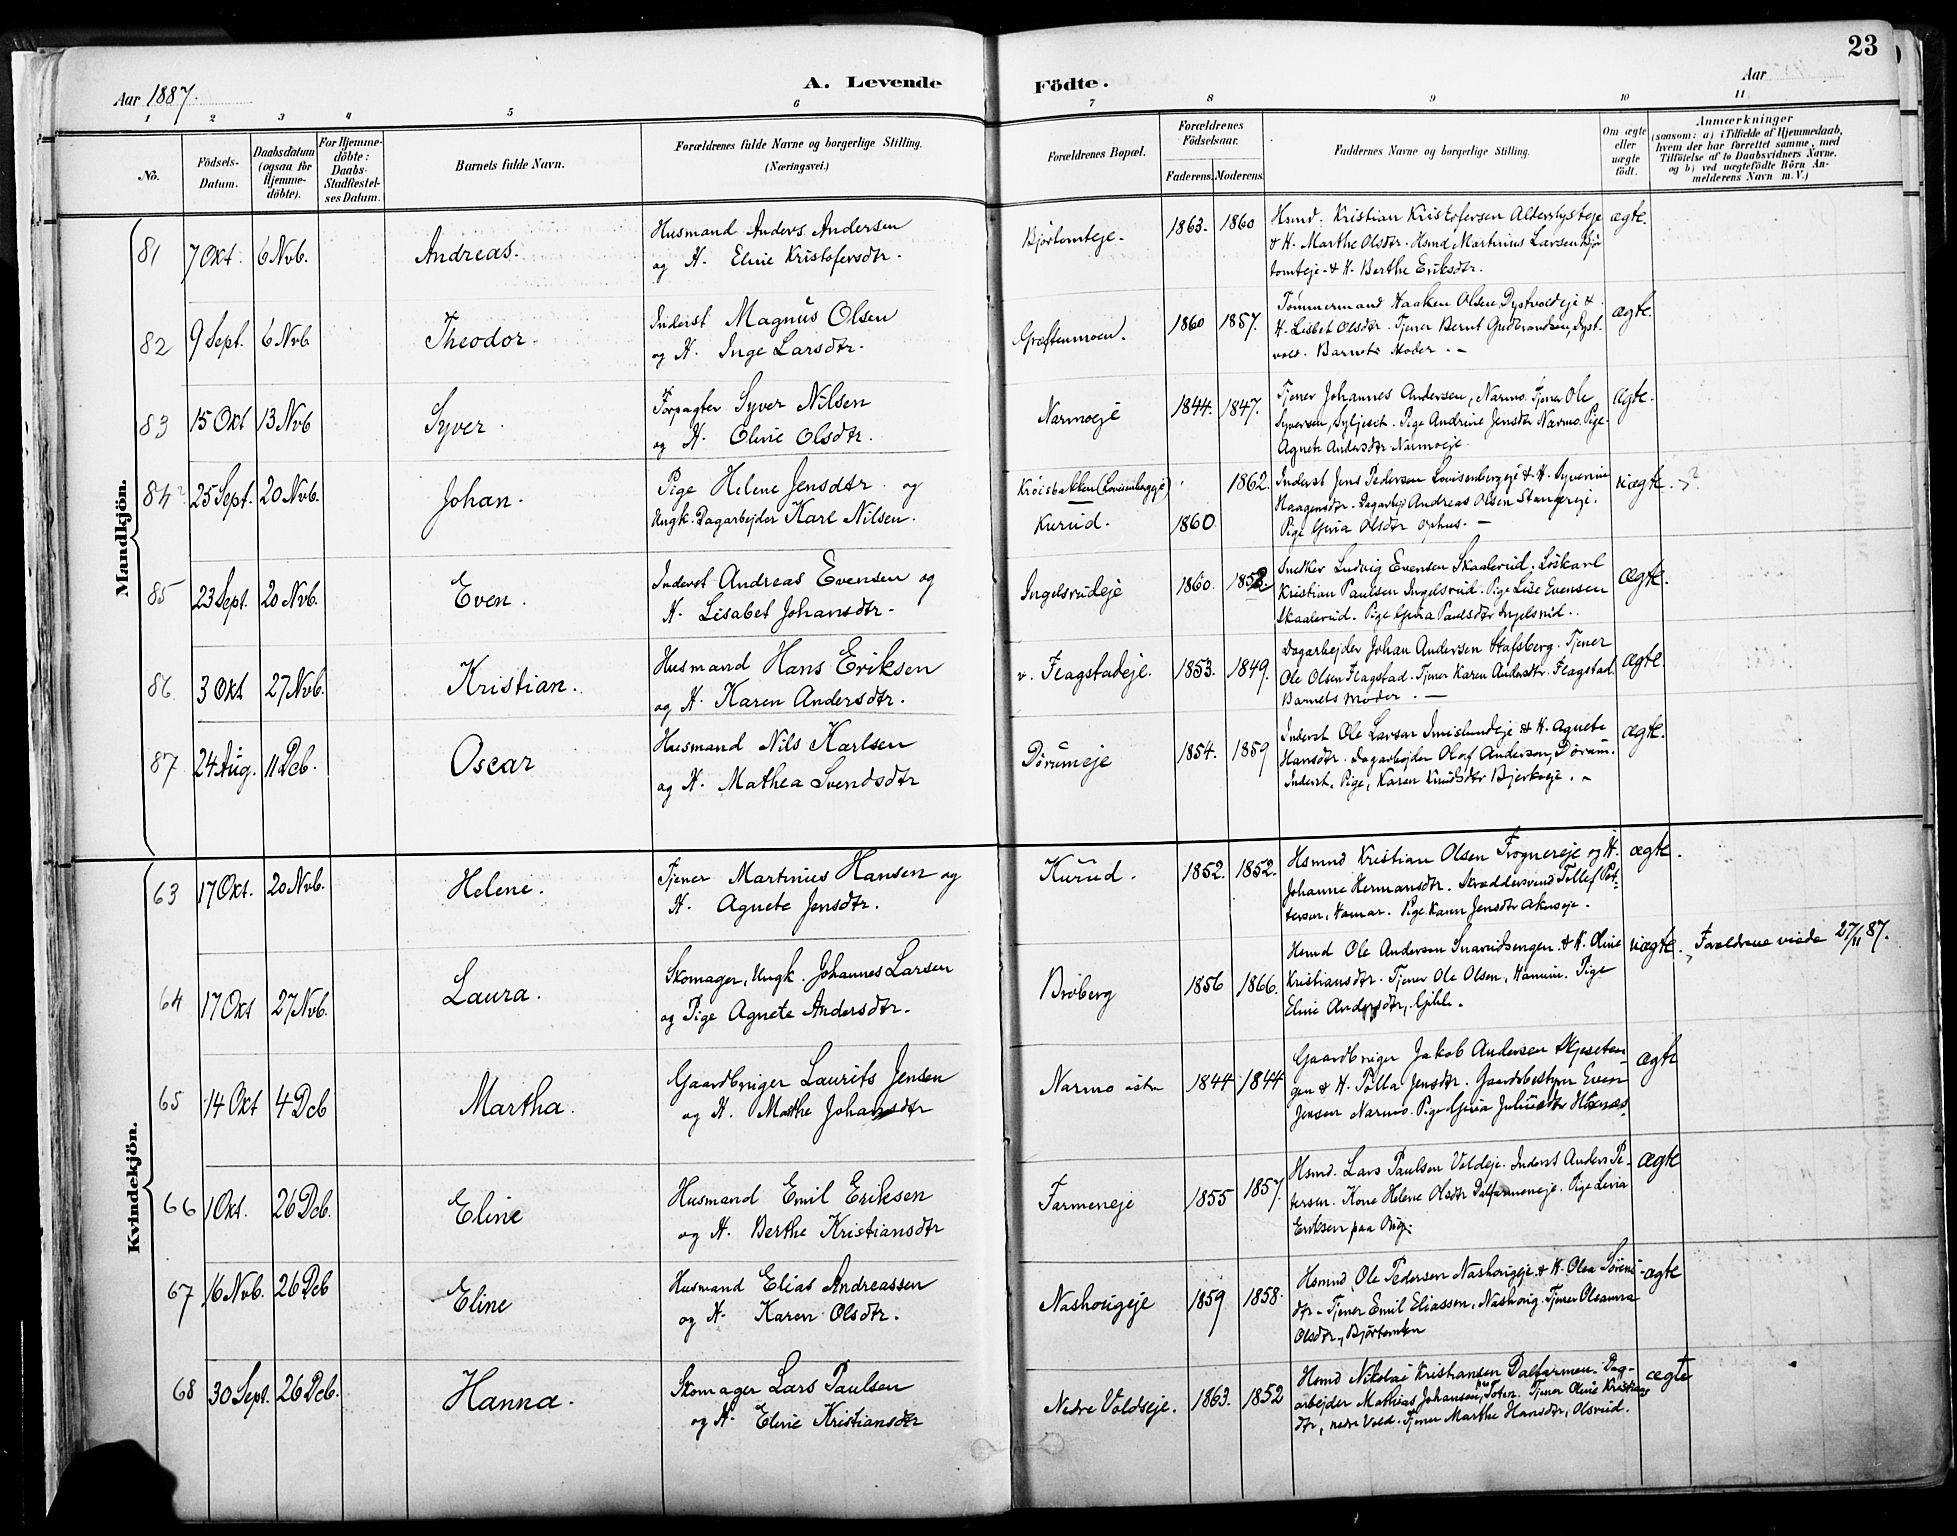 23
Aar 1887.
A. Levende Födte.
Aar
1 2 3 4 5 6 7 8 9 10 11
No.
Födsels-Datum.
Daabsdatum (ogsaa för Hjemme-döbte).
For Hjemme-döbte: Daabs-Stadfæstel-ses Datum.
Barnets fulde Navn.
Forældrenes fulde Navne og borgerlige Stilling. (Næringsvei.)
Forældrenes Bopæl.
Forældrenes Födselsaar.
Faderens. Moderens.
Faddernes Navne og borgerlige Stilling.
Om ægte eller uægte födt.
Anmærkninger
(saasom: a) i Tilfælde af Hjemmedaab, hvem der har forrettet samme, med Tilföielse af to Daabsvidners Navne, og b) ved uægtefödte Börn An-melderens Navn m. V.)
Mandkjön.
81 7 Okt. 6 Nvb. Andreas.
Husmand Anders Andersen
og H. Eline Kristofersdtr.
Bjørtomteje. 1863. 1860
Hsmd. Kristian Kristofersen Alderslysteje
& H. Marthe Olsdtr. Hsmd Martinius Larsen Bjør
tomteje & H. Berthe Eriksdtr.
ægte.
82 9 Sept. 6 Nvb Theodor.
Inderst Magnus Olsen
og H. Inge Larsdtr.
Græftenmoen. 1860 1857.
Tømmermand Haaken Olsen, Dystvoldeje &
H. Lisbet Olsdtr. Tjener Bernt Gudbrandsen, Dyst-
vold. Barnets Moder. —
ægte.
83 15 Okt 13 Nvb Syver.
Forpagter Syver Nilsen
og H. Oline Olsdtr.
Narmoeje 1844. 1847.
Tjener Johannes Andersen, Narmo. Tjener Ole
Syversen, Syljeset. Pige Andrine Jensdtr Narmo. Pige
Agnete Andersdtr Narmoeje.
ægte.
84? 25 Sept. 20 Nvb. Johan.
Pige Helene Jensdtr. og
Ungk. Dagarbejder Karl Nilsen.
Krøisbakken (Lovisenbergeje) 1862.
Kurud. 1860.
Inderst Jens Pedersen Lovisenbergeje & H. Syverine
Haagensdtr. Dagarbej Andreas Olsen Stangereje.
Pige Olsdtr Ophus. —
uægte. ?
85 23 Sept. 20 Nvb. Even.
Inderst Andreas Evensen og
H. Lisabet Johansdtr.
Ingelsrudeje 1860. 1852.
Snedker Ludvig Evensen Skaalerud. Løskarl
Kristian Paulsen Ingelsrud. Pige Lise Evensen
Skaalerud. Pige Paulsdtr Ingelsrud.
ægte.
86 3 Okt 27 Nvb. Kristian.
Husmand Hans Eriksen
og H. Karen Andersdtr.
v. Flagstadeje. 1853. 1849.
Dagarbejder Johan Andersen Stafsberg. Tjener
Ole Olsen Flagstad. Tjener Karen Andersdtr. Flagstad.
Barnets Moder. —
ægte.
87 24 Aug. 11 Dcb. Oscar
Husmand Nils Karlsen
og H. Mathea Svendsdtr
Dørumeje 1854. 1859
Inderst Ole Larsen Imislundeje & H. Agnete
Hansdtr. Dagarbejder Olof Andersen, Dørum.
Inderst. Pige, Karen Knudsdtr Bjerkeeje. —
ægte.
Kvindekjön.
63 17 Okt. 20 Nvb. Helene.
Tjener Martinius Hansen og
H. Agnete Jensdtr.
Kurud. 1852. 1852.
Hsmnd Kristian Olsen Frognereje og H.
Johanne Hermansdtr. Skræddersvend Tollef Pet-
tersen, Hamar. Pige Karen Jensdtr Akerseje.
ægte.
64 17 Okt 27 Nvb. Laura.
Skomager, Ungk. Johannes Larsen
og Pige Agnete Andersdtr.
Broberg 1856 1866.
Hsmd Ole Andersen Snarudsengen. & H. Oline
Kristiansdtr. Tjener Ole Olsen, Hamum. Pige
Eline Andersdtr,
uægte. Forældrene viede 27/11 87.
65 14 Okt 4 Dcb Martha.
Gaardbruger Laurits Jensen
og H. Marthe Johansdtr
Narmo østre 1844 1844
Gaardbruger Jakob Andersen Skjeseten-
gen & H. Polla Jensdtr. Gaardsbestyrer Even
Jensen Narmo. Pige
ægte
66 1 Okt. 26 Dcb. Eline
Husmand Emil Eriksen
og H. Berthe Kristiansdtr
Farmeneje 1855 1857.
Hsmd. Lars Paulsen Voldeje. Inderst Anders Pe-
tersen. Kone Helene Olsdtr Dalfarmeneje. Pige
Eriksen paa
ægte
67 16 Nvb. 26 Dcb Eline
Husmand Elias Andreassen
og H. Karen Olsdtr.
Nashougeje 1859 1858.
Hsmnd Ole Pedersen Nashougeje & H. Olea Sørens-
dtr - Tjener Emil Eliassen, Nashoug. Tjener Oleanna
Olsdtr, Bjørtomten
ægte
68 30 Sept. 26 Dcb. Hanna.
Skomager Lars Paulsen
og H. Eline Kristiansdtr
Nedre Voldseje. 1863. 1852
Hsmd Nikolai Kristiansen Dalfarmen. Dag-
arbejder Mathias Johansen, Toten. Tjener Oline Kristians
dtr, nedre Vold. Tjener Marthe Hansdtr, Olsrud.
ægte